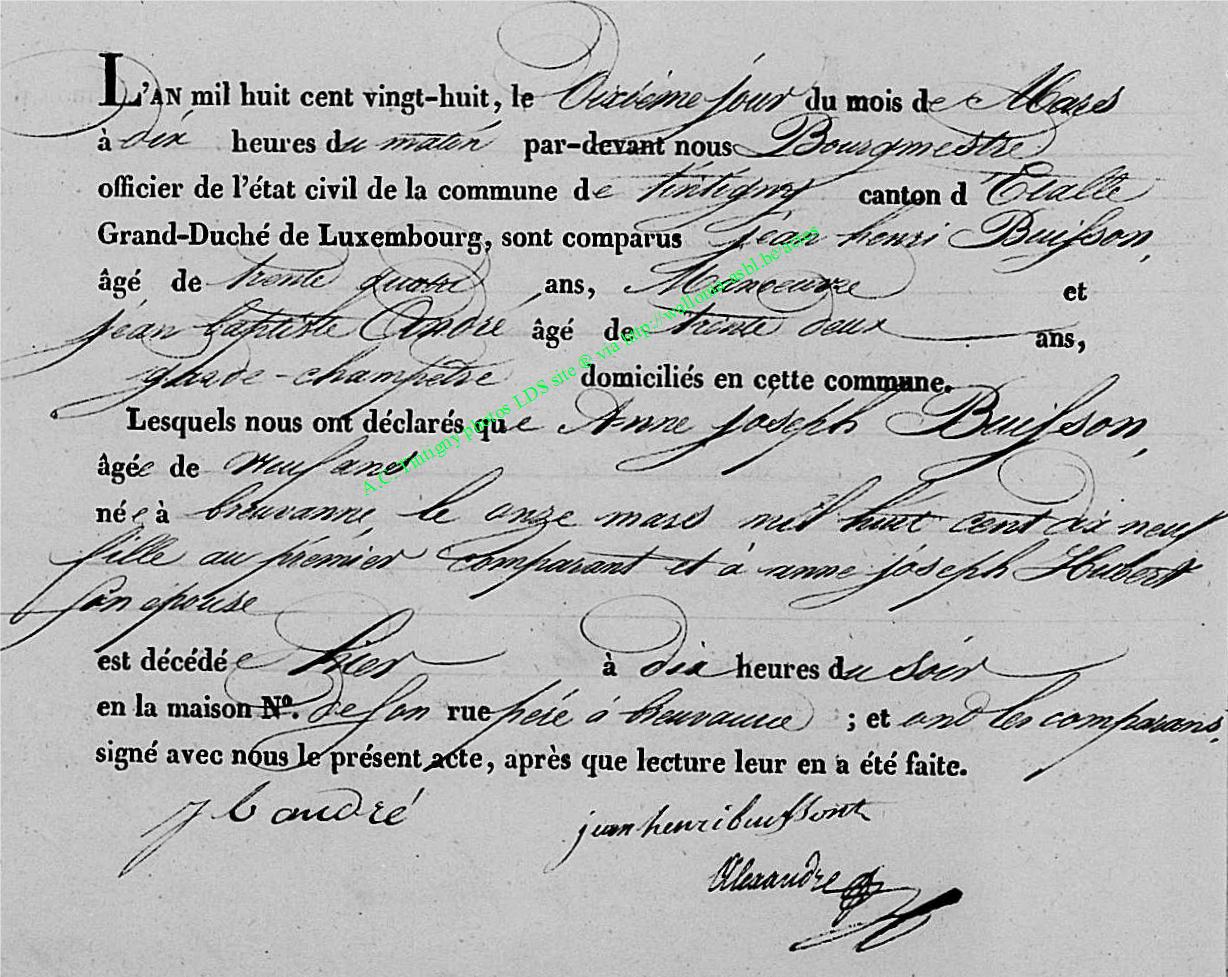 L'AN mil huit cent vingt-huit, le Dixième jour du mois de Mars
à dix heures du matin par-devant nous Bourgmestre
officier de l'état civil de la commune de tintigny canton d'Etalle
Grand-Duché de Luxembourg, sont comparus jean henri Buisson,
âgé de trente quatre ans, Manoeuvre et
jean baptiste André âgé de trente deux ans,
garde-champêtre domiciliés en cette commune.
Lesquels nous ont déclarés que Anne joseph Buisson,
âgée de neuf ans
née à breuvanne, le onze mars mil huit cent dix neuf
fille au prémier comparant et à anne joseph Hubert
son epouse
est décédée hier à dix heures du soir
en la maison N°. de son rue père à breuvanne ; et ont les comparans,
signé avec nous le présent acte, après que lecture leur en a été faite.
j b andré
jean henri buissont
Alexandre
A.C. Tintigny photos LDS site ® via http://wallonia-asbl.be/actes